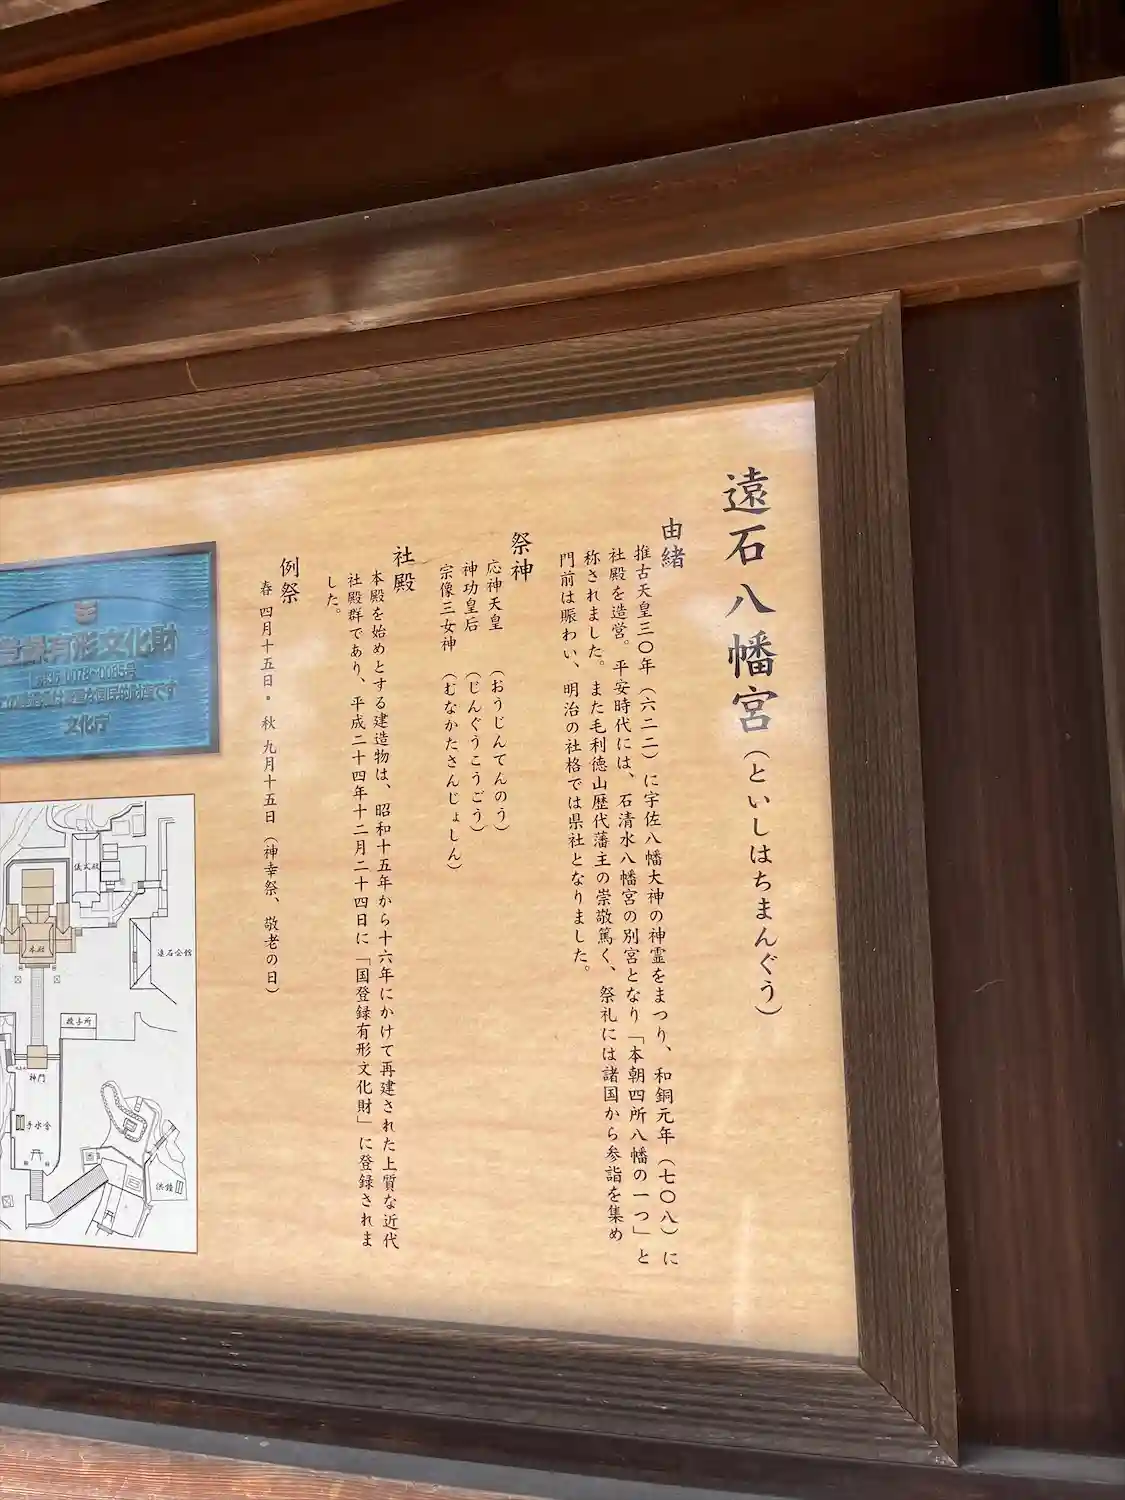 遠石八幡宮（といしはちまんぐう）
由緒
推古天皇三〇年（六二二）に宇佐八幡大神の神霊をまつり、和銅元年（七〇八）に
社殿を造営。平安時代には、石清水八幡宮の別宮となり「本朝四所八幡の一つ」と
称されました。また毛利徳山歴代藩主の崇敬篤く、祭礼には諸国から参詣を集め
門前は賑わい、明治の社格では県社となりました。
祭神
応神天皇（おうじんてんのう）
神功皇后（じんぐうこうごう）
宗像三女神（むなかたさんじょしん）
社殿
本殿を始めとする建造物は、昭和十五年から十六年にかけて再建された上質な近代
社殿群であり、平成二十四年十二月二十四日に「国登録有形文化財」に登録されま
した。
例祭
春 四月十五日・秋 九月十五日（神幸祭、敬老の日）
登録有形文化財
文化庁
儀式殿
本殿
遠石会館
授与所
神門
手水舎
洪鐘